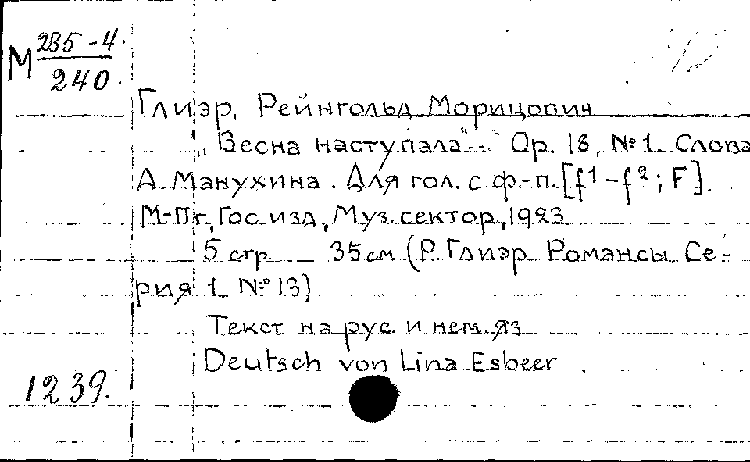 М 235-4
240.
Глиэр, Рейнгольд Морицович
„Весна наступала"... Op. 18, №1. Слова
А. Манухина. Для гол. с ф-п. [f¹-f²; F].
М-Пг, Гос. изд, Муз. сектор, 1923
5 стр 35 см (Р. Глиэр Романсы Се-
рия 1 № 13)
Текст на рус. и нем. яз
Deutsch von Lina Esbeer
1239.